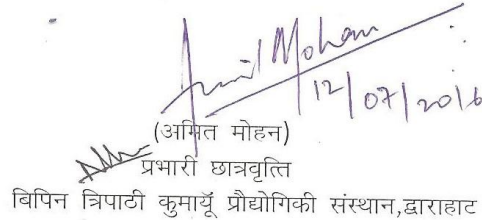 Amit Mohan
12/07/2016
(अमित मोहन)
प्रभारी छात्रवृत्ति
बिपिन त्रिपाठी कुमायूँ प्रौद्योगिकी संस्थान,द्वाराहाट